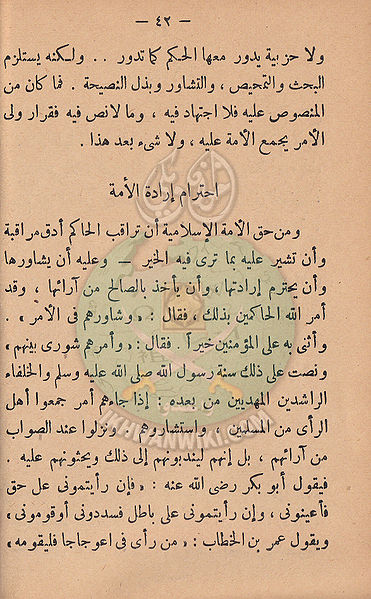 — ٤٢ —
ولا حزبية يدور معها الحكم كما تدور .. ولكنه يستلزم
البحث والتمحيص ، والتشاور وبذل النصيحة . فما كان من
المنصوص عليه فلا اجتهاد فيه ، وما لانص فيه فقرار ولى
الأمر يجمع الأمة عليه ، ولا شىء بعد هذا .
احترام إرادة الأمة
ومن حق الأمة الإسلامية أن تراقب الحاكم أدق مراقبة
وأن تشير عليه بما ترى فيه الخير — وعليه أن يشاورها
وأن يحترم إرادتها ، وأن يأخذ بالصالح من آرائها ، وقد
أمر الله الحاكمين بذلك ، فقال : « وشاورهم فى الأمر » .
وأثنى به على المؤمنين خيراً . فقال : « وأمرهم شورى بينهم »
ونصت على ذلك سنة رسول الله صلى الله عليه وسلم والخلفاء
الراشدين المهديين من بعده : إذا جاءهم أمر جمعوا أهل
الرأى من المسلمين ، واستشاروهم ونزلوا عند الصواب
من آرائهم ، بل إنهم ليندبونهم إلى ذلك ويحثونهم عليه .
فيقول أبو بكر رضى الله عنه : « فإن رأيتمونى على حق
فأعينونى ، وإن رأيتمونى على باطل فسددونى أوقومونى ،
ويقول عمر بن الخطاب : « من رأى فى اعوجاجا فليقومه ،
IKHWANWIKI.COM